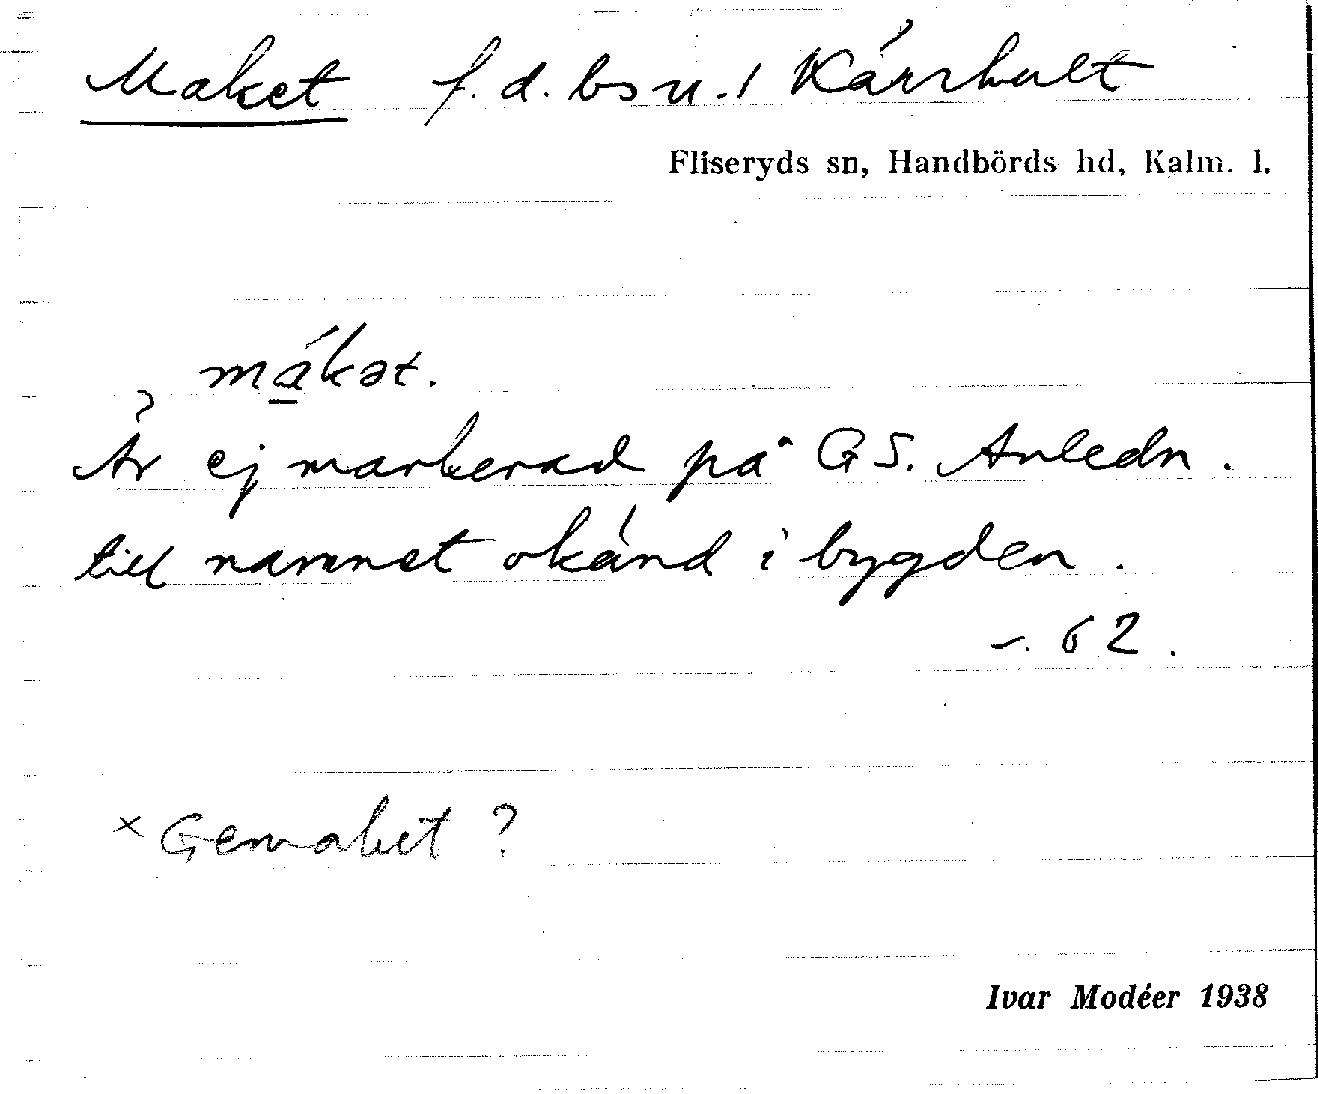 Maket f.d. bs u. 1 Kärrhult
Fliseryds sn, Handbörds hd, Kalm. l.
má̱kət.
Är ej markerad på GS. Anledn.
till namnet okänd i bygden.
–. 62.
× Gemaket ?
Ivar Modéer 1938